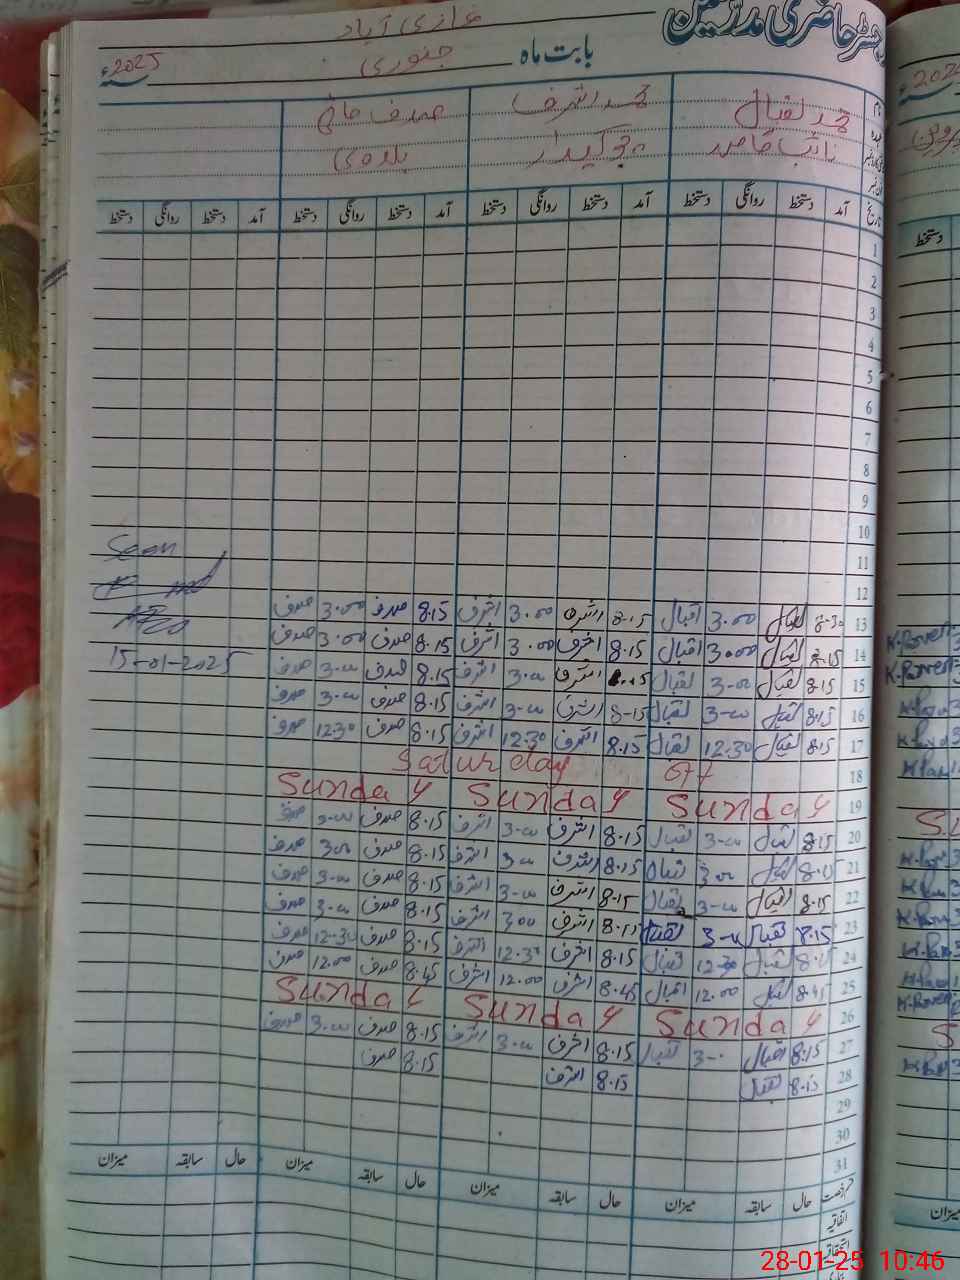 رجسٹر حاضری مدرسین
غازی آباد
بابت ماہ جنوری 2025ء
محمد اقبال محمد اشرف صدف
نائب قاصد چوکیدار
تاریخ آمد دستخط روانگی دستخط آمد دستخط روانگی دستخط آمد دستخط روانگی دستخط آمد دستخط روانگی دستخط
1
2
3
4
5
6
7
8
9
10
11
Seen
12
13 8-30 اقبال 3.00 اقبال 8.15 اشرف 3.00 اشرف 8.15 صدف 3.00 صدف
14 8.15 اقبال 3.00 اقبال 8.15 اشرف 3.00 اشرف 8.15 صدف 3.00 صدف
15-01-2025
15 8.15 اقبال 3-00 اقبال 8.15 اشرف 3-00 اشرف 8.15 صدف 3-00 صدف
16 8.15 اقبال 3-00 اقبال 8-15 اشرف 3-00 اشرف 8.15 صدف 3-00 صدف
17 8.15 اقبال 12.30 اقبال 8.15 اشرف 12.30 اشرف 8.15 صدف 12.30 صدف
18 Saturday off
19 Sunday Sunday Sunday
20 8.15 اقبال 3-00 اقبال 8.15 اشرف 3-00 اشرف 8.15 صدف 3-00 صدف
21 8.15 اقبال 3.00 اقبال 8.15 اشرف 3.00 اشرف 8.15 صدف 3.00 صدف
22 8.15 اقبال 3-00 اقبال 8.15 اشرف 3-00 اشرف 8.15 صدف 3-00 صدف
23 8.15 اقبال 3-00 اقبال 8.15 اشرف 3.00 اشرف 8.15 صدف 3-00 صدف
24 8.15 اقبال 12.30 اقبال 8.15 اشرف 12.30 اشرف 8.15 صدف 12-30 صدف
25 8.45 اقبال 12.00 اقبال 8.45 اشرف 12.00 اشرف 8.45 صدف 12.00 صدف
26 Sunday Sunday Sunday
27 8.15 اقبال 3-00 اقبال 8.15 اشرف 3.00 اشرف 8.15 صدف 3-00 صدف
28 8.15 اقبال 8.15 اشرف 8.15 صدف
29
30
31
قسم رخصت حال سابقہ میزان حال سابقہ میزان حال سابقہ میزان حال سابقہ میزان
اتفاقیہ
استحقاقیہ
28-01-25 10:46